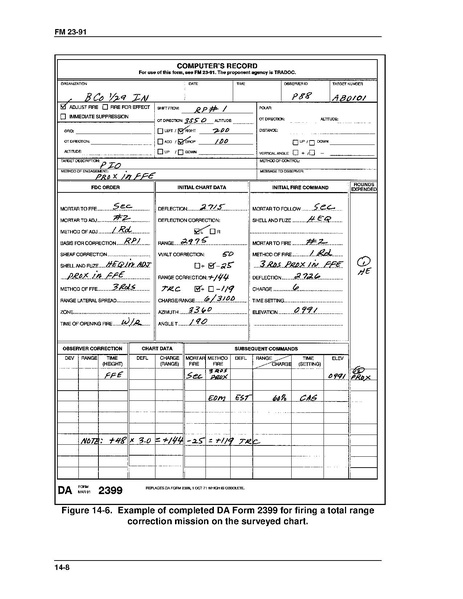 FM 23-91
COMPUTER'S RECORD
For use of this form, see FM 23-91. The proponent agency is TRADOC.
ORGANIZATION DATE TIME OBSERVER ID TARGET NUMBER
B CO 1/29 IN P88 AB0101
ADJUST FIRE FIRE FOR EFFECT SHIFT FROM: RP# 1 POLAR:
IMMEDIATE SUPPRESSION OT DIRECTION: 3850 ALTITUDE: OT DIRECTION: ALTITUDE:
GRID: LEFT / RIGHT 200 DISTANCE:
OT DIRECTION: ADD / DROP 100 UP / DOWN
ALTITUDE: UP / DOWN VERTICAL ANGLE + / -
TARGET DESCRIPTION: PIO METHOD OF CONTROL:
METHOD OF ENGAGEMENT: PROX in FFE MESSAGE TO OBSERVER:
FDC ORDER INITIAL CHART DATA INITIAL FIRE COMMAND ROUNDS EXPENDED
MORTAR TO FFE Sec DEFLECTION 2715 MORTAR TO FOLLOW Sec
MORTAR TO ADJ #2 DEFLECTION CORRECTION: SHELL AND FUZE HEQ
METHOD OF ADJ 1 Rd L R
BASIS FOR CORRECTION RP1 RANGE 2975 MORTAR TO FIRE #2
SHEAF CORRECTION VI/ALT CORRECTION: 50 METHOD OF FIRE 1 Rd
SHELL AND FUZE HEQ in ADJ + - -25 3 RDS PROX IN FFE 1 HE
PROX in FFE RANGE CORRECTION +144 DEFLECTION 2726
METHOD OF FFE 3 Rds TRC + - -119 CHARGE 6
RANGE LATERAL SPREAD CHARGE/RANGE 6/3100 TIME SETTING
ZONE AZIMUTH 3360 ELEVATION 0991
TIME OF OPENING FIRE W/R ANGLE T 190
OBSERVER CORRECTION CHART DATA SUBSEQUENT COMMANDS
DEV RANGE TIME (HEIGHT) DEFL CHARGE (RANGE) MORTAR FIRE METHOD FIRE DEFL RANGE CHARGE TIME (SETTING) ELEV
FFE Sec 3 RDS PROX 0991 PROX
EOM EST 60% CAS
NOTE: +48 x 3.0 = +144 -25 = +119 TRC
DA FORM MAR 91 2399 REPLACES DA FORM 2399, 1 OCT 71 WHICH IS OBSOLETE.
Figure 14-6. Example of completed DA Form 2399 for firing a total range
correction mission on the surveyed chart.
14-8